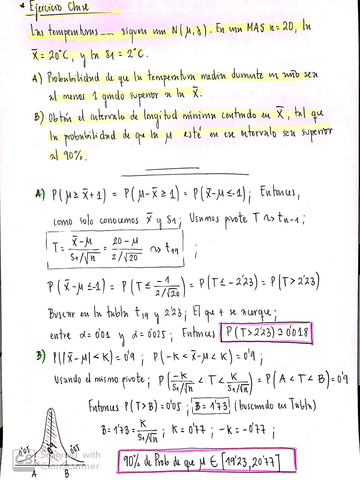 * Ejercicio Clase
Las temperaturas ... siguen una N(μ,σ). En una MAS n=20, la
X̄=20°C, y la S1=2°C.
A) Probabilidad de que la temperatura media durante un año sea
al menos 1 grado superior a la X̄.
B) Obtén el intervalo de longitud mínima centrado en X̄, tal que
la probabilidad de que la μ esté en ese intervalo sea superior
al 90%.
A) P(μ ≥ X̄+1) = P(μ-X̄ ≥ 1) = P(X̄-μ ≤ -1); Entonces,
como solo conocemos X̄ y S1; Usamos pivote T ~> t n-1;
T = (X̄-μ)/(S1/√n) = (20-μ)/(2/√20) ~> t19 ;
P(X̄-μ ≤ -1) = P(T ≤ -1/(2/√20)) = P(T ≤ -2'23) = P(T > 2'23)
Buscar en la tabla t19 y 2'23; El que + se acerque;
entre α=0'01 y α=0'025; Entonces P(T>2'23) ≅ 0'018
B) P(|X̄-μ| < K) = 0'9 ; P(-K < X̄-μ < K) = 0'9;
Usando el mismo pivote; P(-K/(S1/√n) < T < K/(S1/√n)) = P(A < T < B) = 0'9
Entonces P(T>B) = 0'05; B=1'73 (buscando en Tabla)
B = 1'73 = K/(S1/√n) ; K = 0'77 ; -K = -0'77;
0'05 0'05
A B
90% de Prob de que μ ∈ [19'23, 20'77]
CS Escaneado with
CamScanner